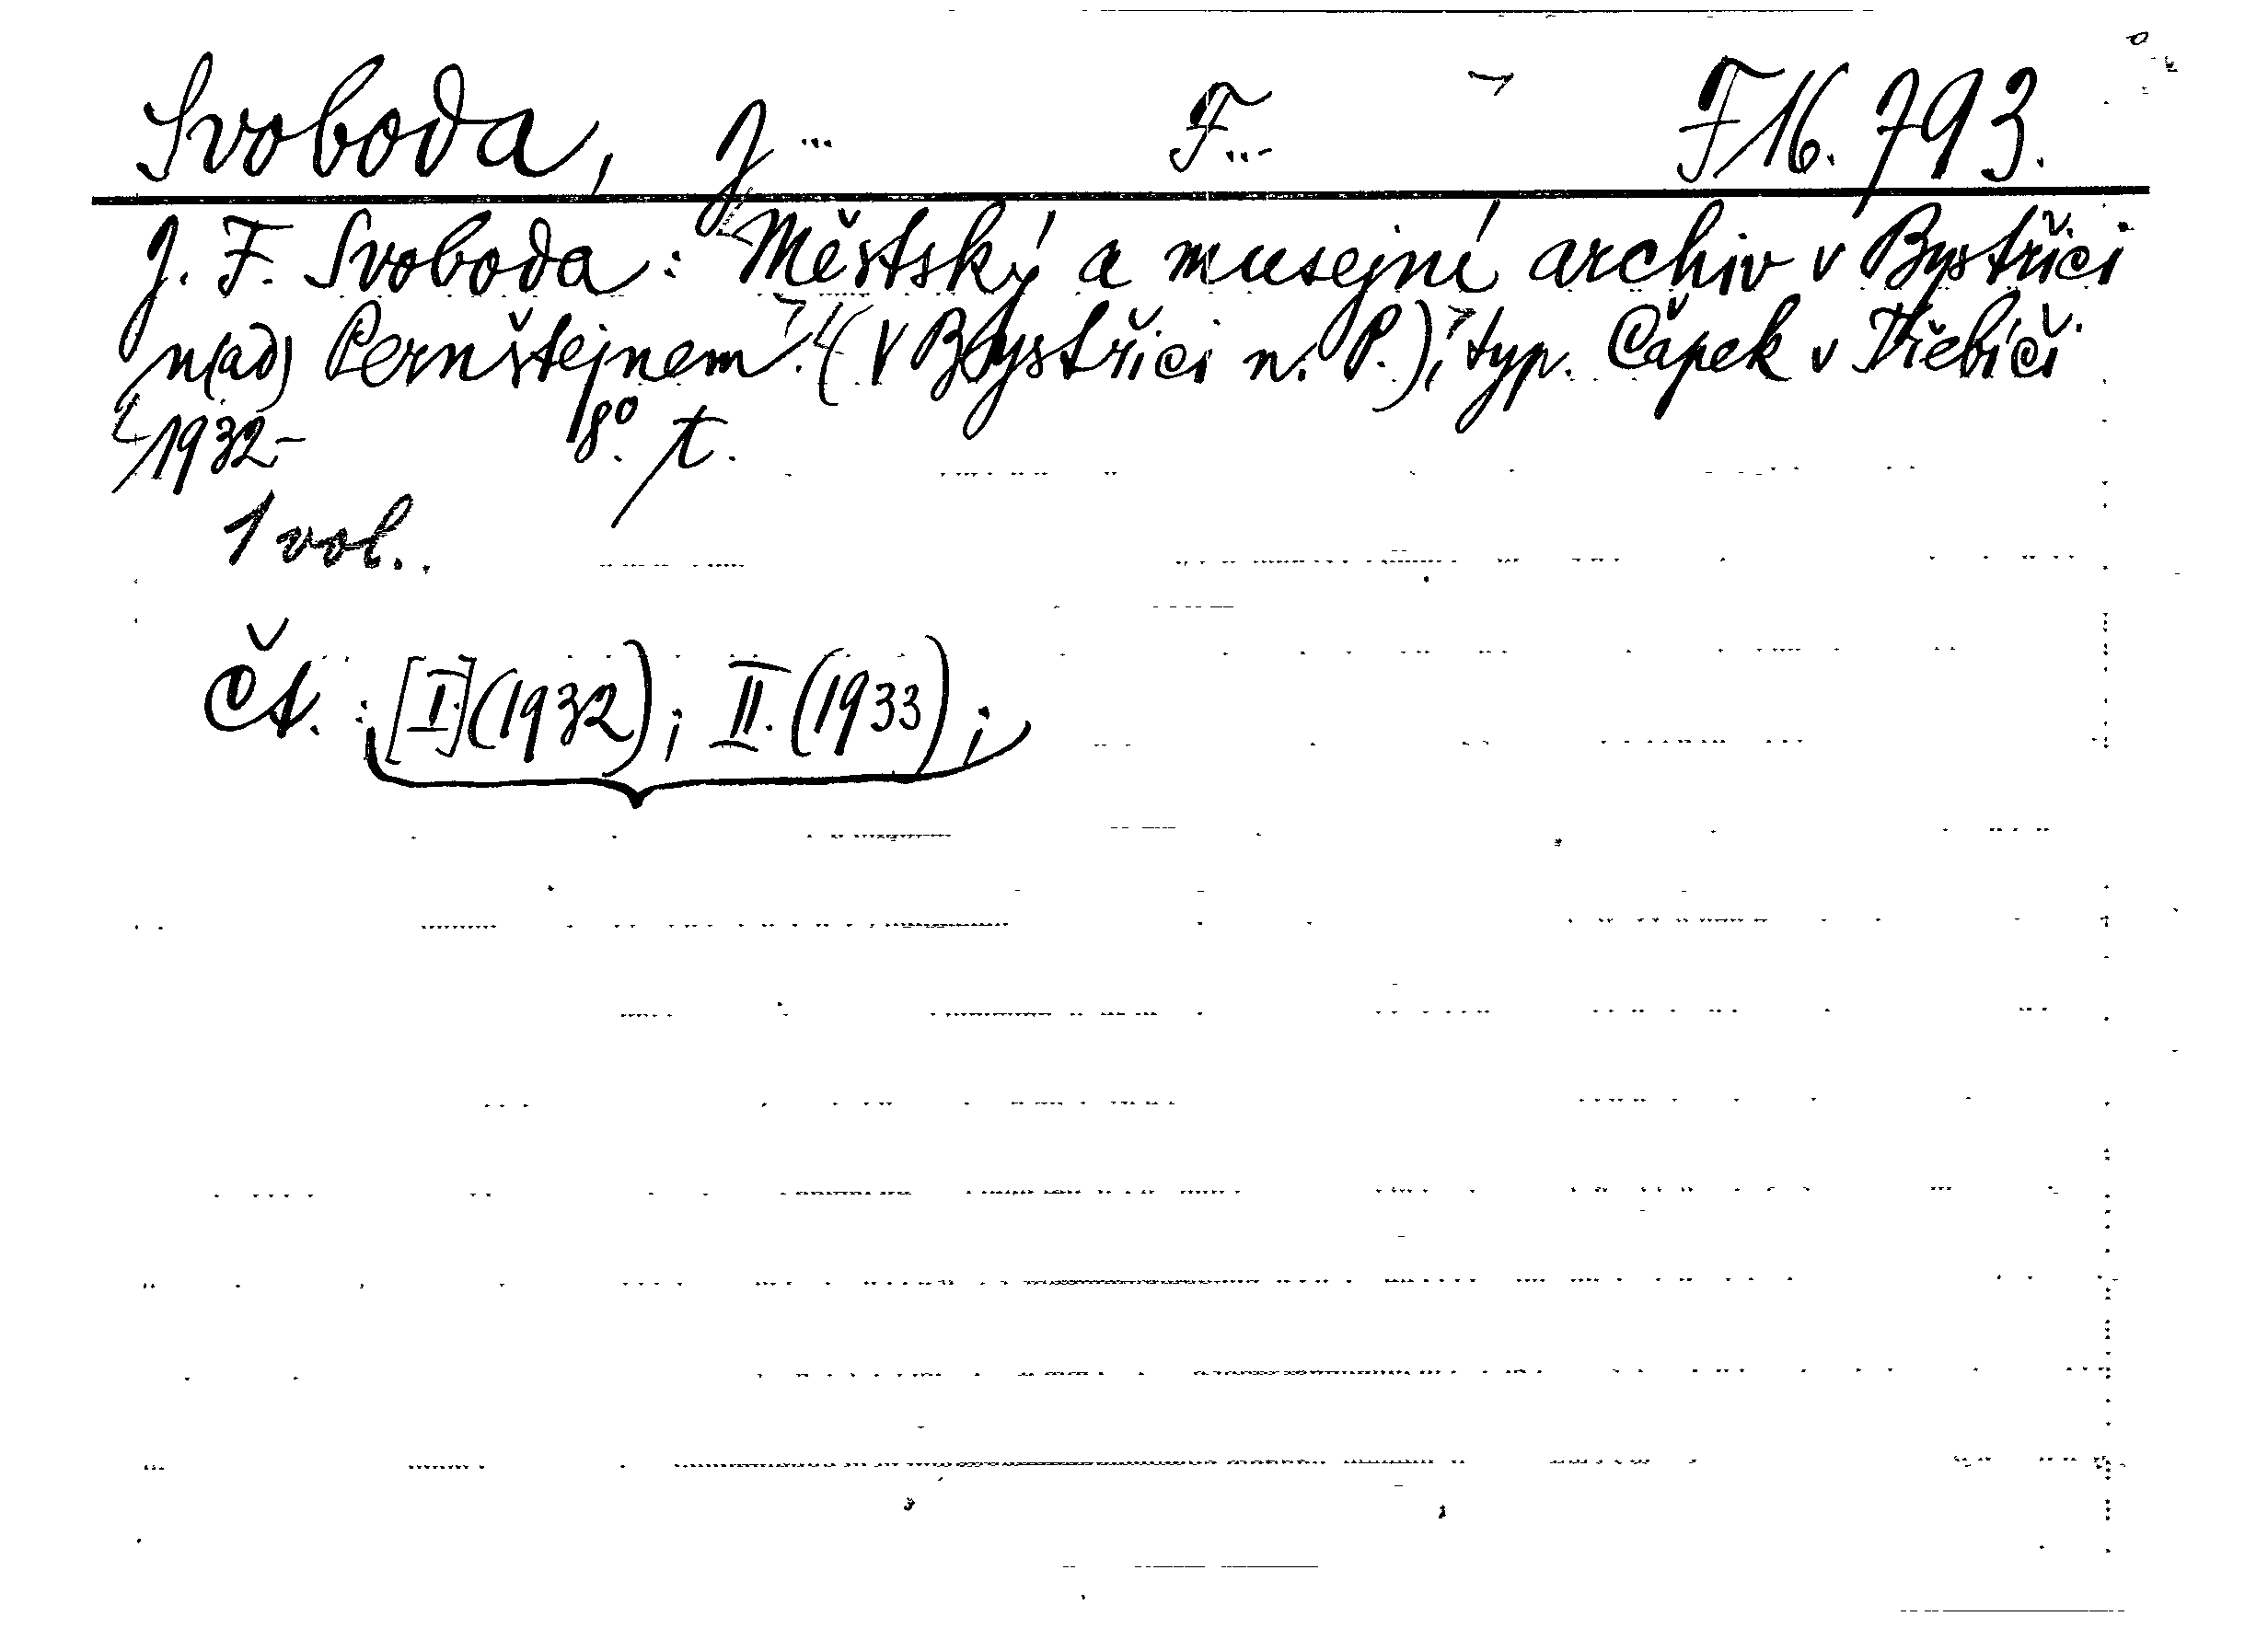 Svoboda, J... F... F 16.793.
J. F. Svoboda: Městský a musejní archiv v Bystřici
n(ad) Pernštejnem. (V Bystřici n. P.), typ. Čapek v Třebíči
1932- 8º. t.
1 vol.
Čt.: [I.] (1932); II. (1933);